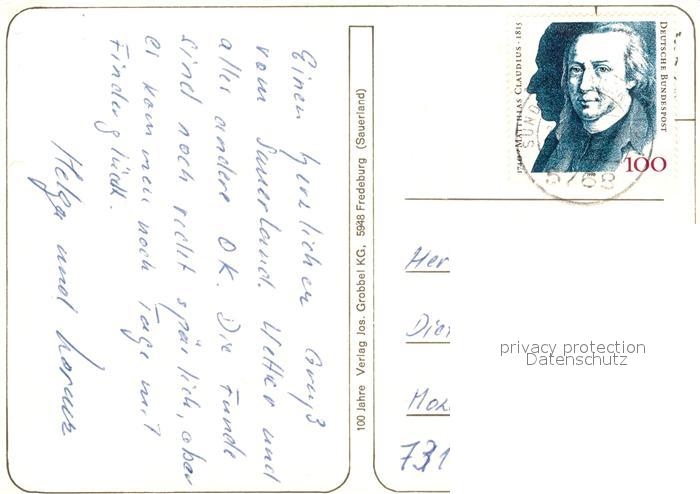 Einen herzlichen Gruß
vom Sauerland. Wetter und
alles andere OK. Die Funde
sind noch recht spärlich, aber
es kommen noch Tage mit
Finderglück.
Helga und
100 Jahre Verlag Jos. Grobbel KG, 5948 Fredeburg (Sauerland)
1740 · MATTHIAS CLAUDIUS · 1815
DEUTSCHE BUNDESPOST
100
SUND
5768
Her
Die
731
privacy protection
Datenschutz